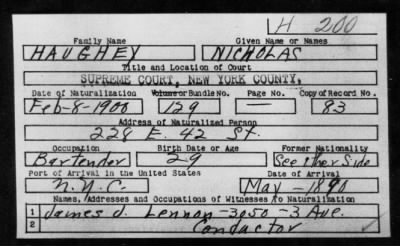 H 200
Family Name Given Name or Names
HAUGHEY NICHOLAS
Title and Location of Court
SUPREME COURT, NEW YORK COUNTY,
Date of Naturalization Volume or Bundle No. Page No. Copy of Record No.
Feb-8-1900 129 — 83
Address of Naturalized Person
228 E. 42 St.
Occupation Birth Date or Age Former Nationality
Bartender 29 See other Side
Port of Arrival in the United States Date of Arrival
N.Y.C. May-1890
Names, Addresses and Occupations of Witnesses To Naturalization
1 James J. Lennon-3050-3 Ave.
2 Conductor